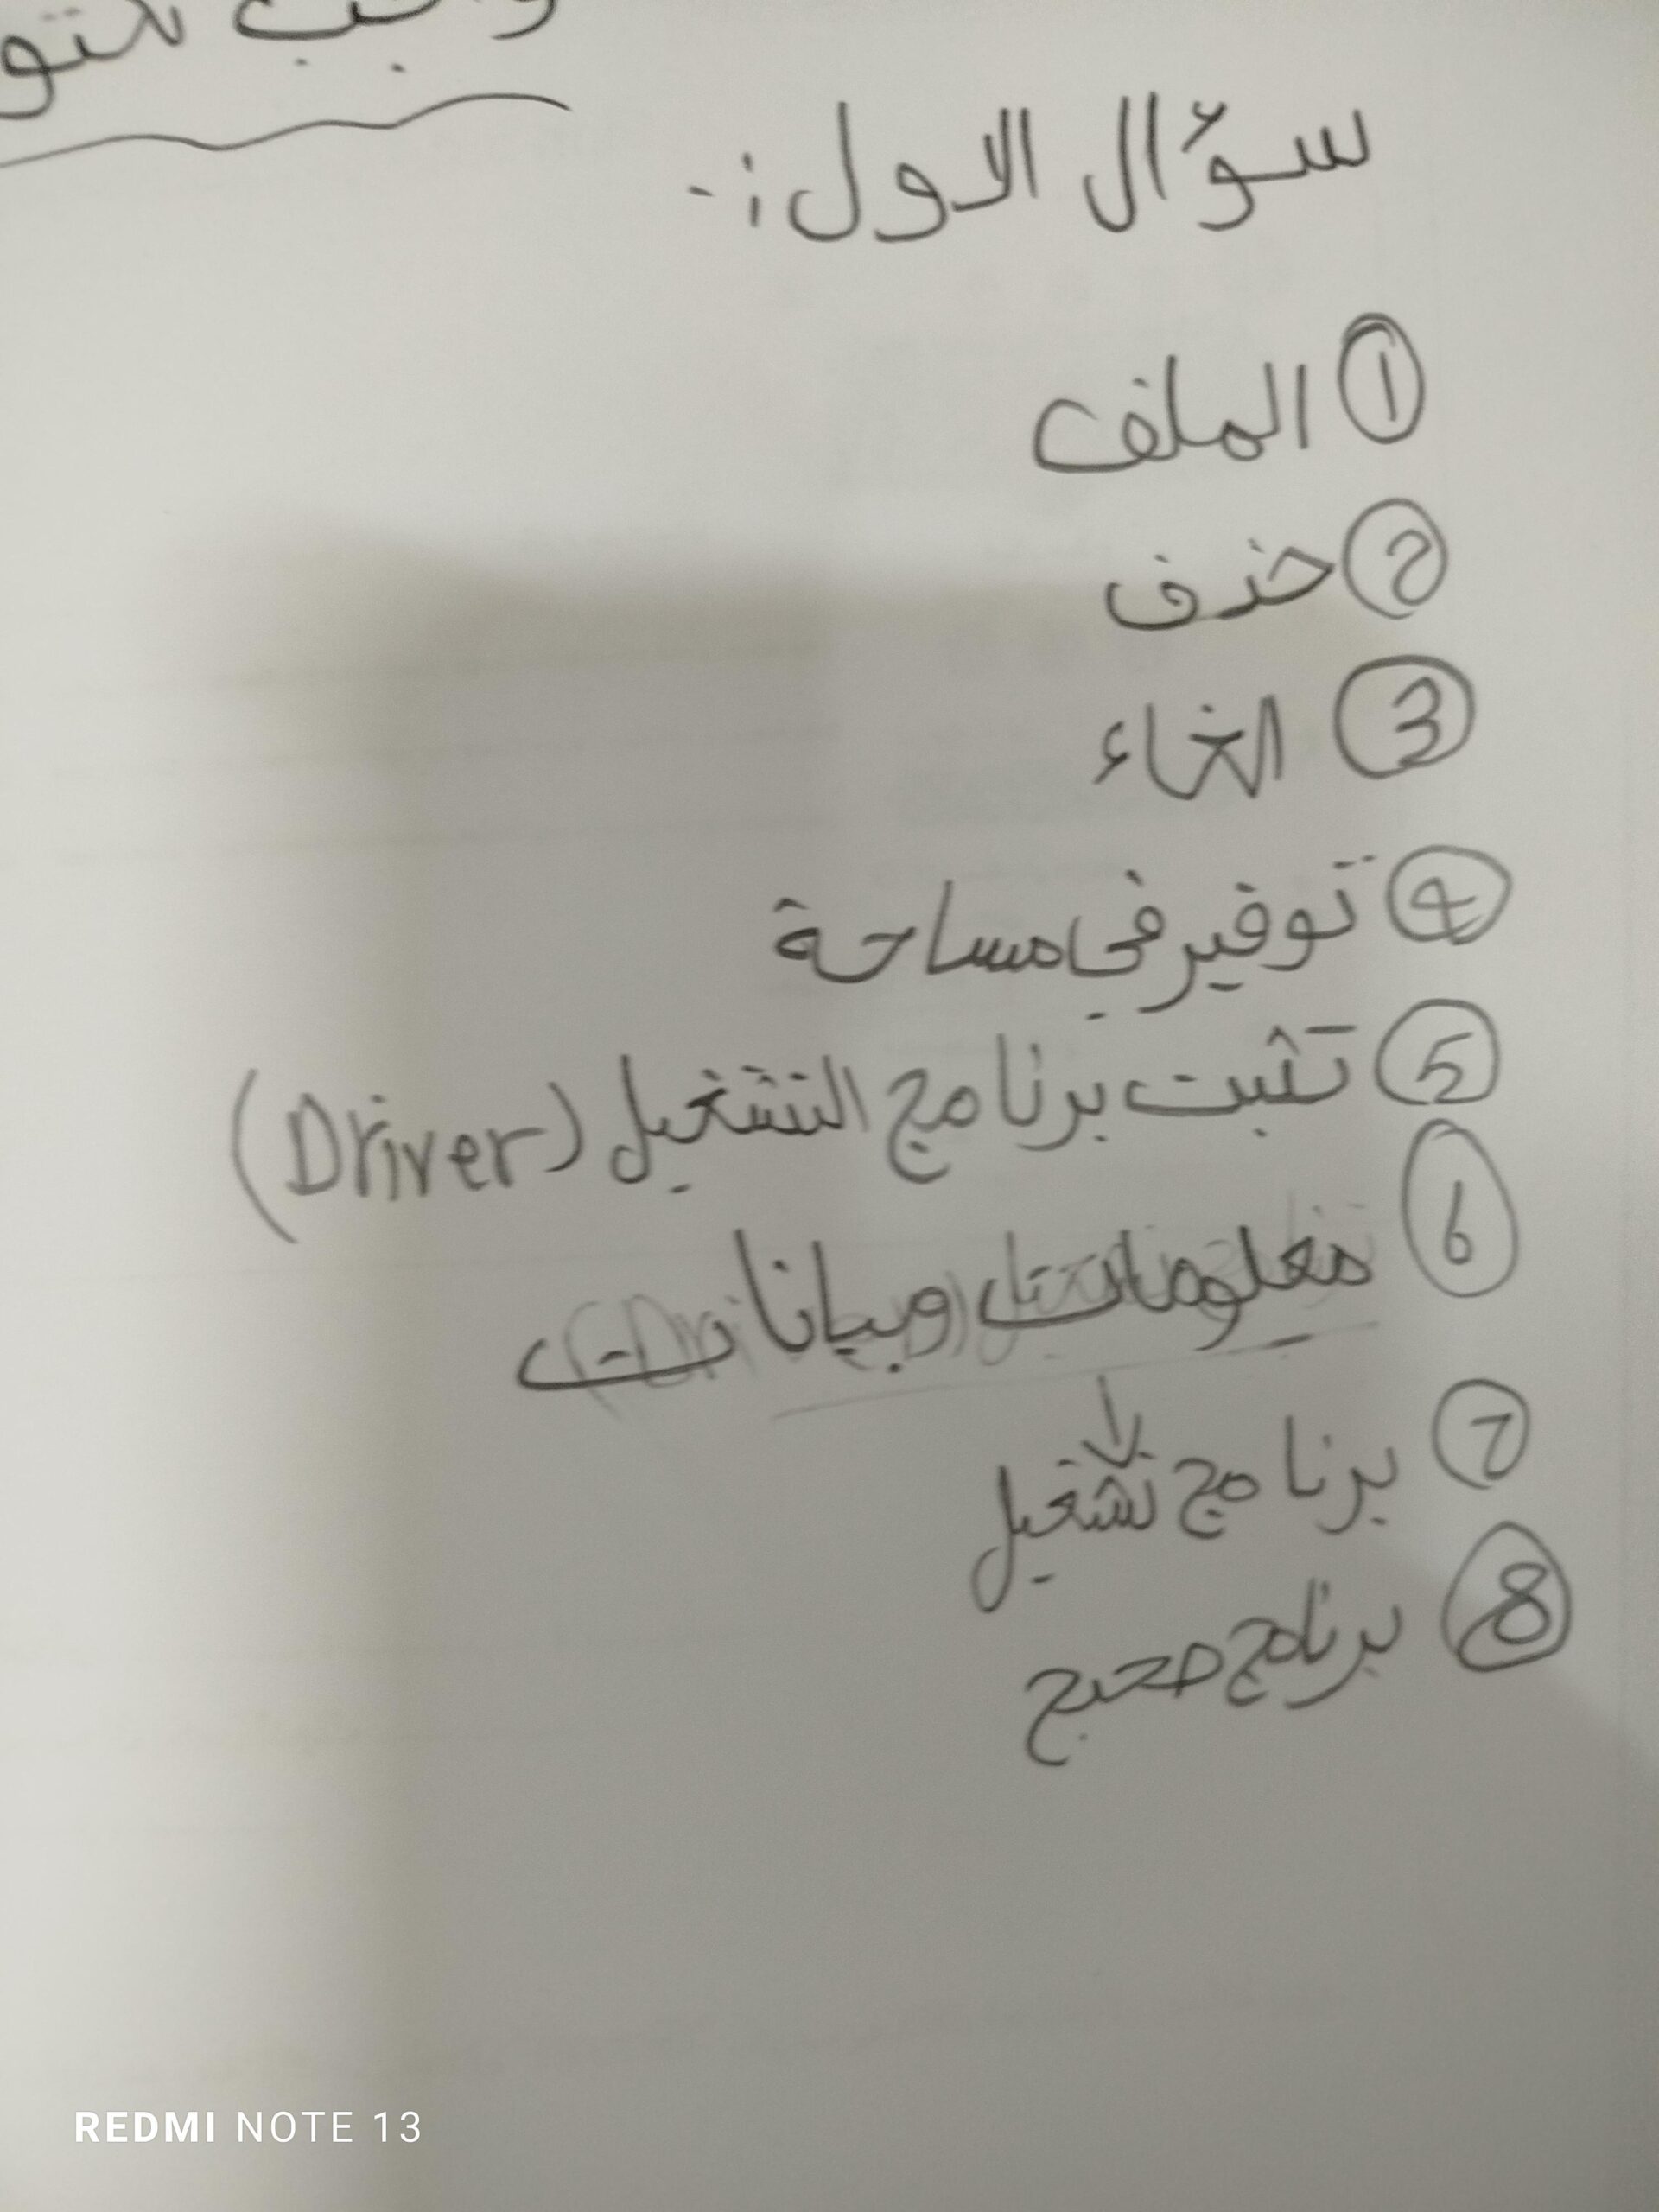 واجب
سؤال الاول :-
① الملف
② حذف
③ الغاء
④ توفير في مساحة
⑤ تثبت برنامج التشغيل (Driver)
⑥ معلومات وبيانات
⑦ برنامج تشغيل
⑧ برنامج صحيح
REDMI NOTE 13